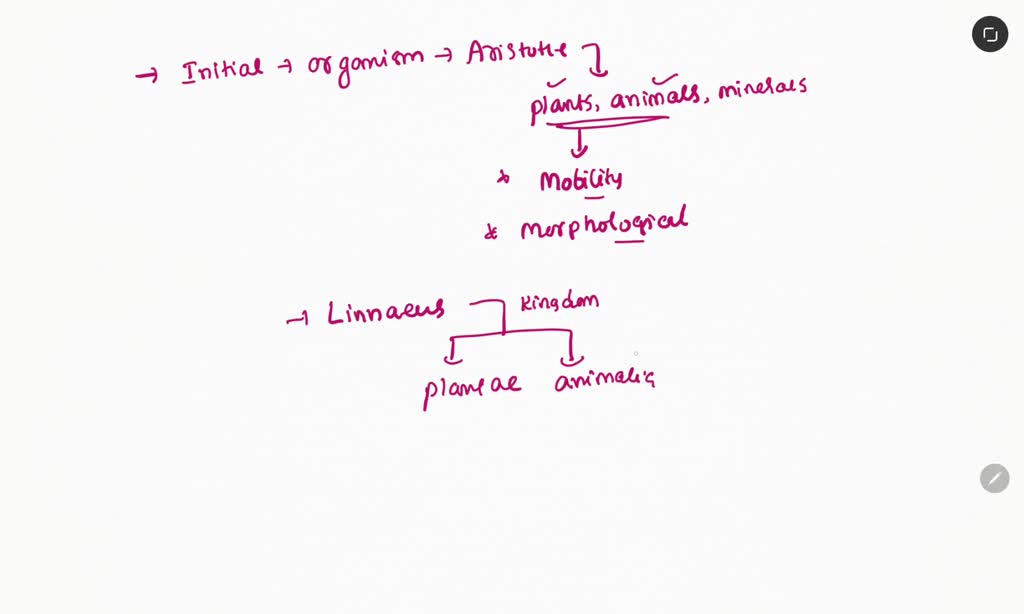 → Initial → organism → Aristotle
plants, animals, minerals
* Mobility
* morphological
→ Linnaeus Kingdom
planeae animalia